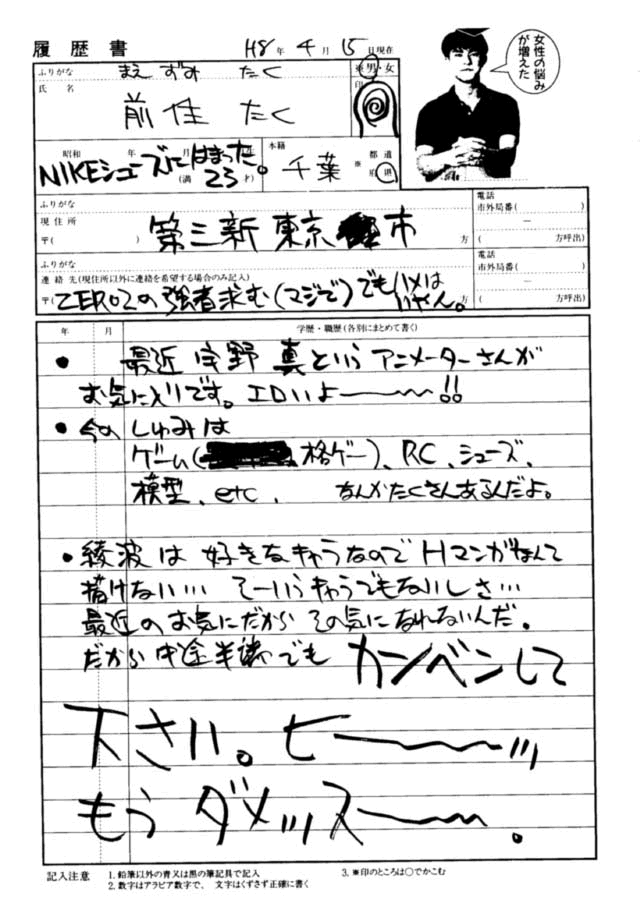 履歴書
H8年4月15日現在
女性の悩み
が増えた
ふりがな まえずみ たく
※男・女
氏名
前住 たく
印
昭和 年 月
NIKEシューズにはまった。
(満23才)
本籍
千葉 ※都道府県
ふりがな
現住所
〒( )
第三新東京市
方
電話
市外局番( )
―
( 方呼出)
ふりがな
連絡先(現住所以外に連絡を希望する場合のみ記入)
〒ZERO2の強者求む(マジで)でもハメは
いやん。
方
電話
市外局番( )
―
( 方呼出)
年 月 学歴・職歴(各別にまとめて書く)
• 最近宇野真というアニメーターさんが
お気に入りです。エロいよー〜〜!!
• 今のしゅみは
ゲーム( 格ゲー)、RC、シューズ、
模型、etc. なんかたくさんあるんだよ。
• 綾波は好きなキャラなのでHマンガなんて
描けない… そーいうキャラでもないしさ…
最近のお気にだからその気になれないんだ。
だから中途半端でもカンベンして
下さい。ヒー〜〜ッ
もうダメッスー〜。
記入注意
1.鉛筆以外の青又は黒の筆記具で記入
2.数字はアラビア数字で、文字はくずさず正確に書く
3.※印のところは○でかこむ